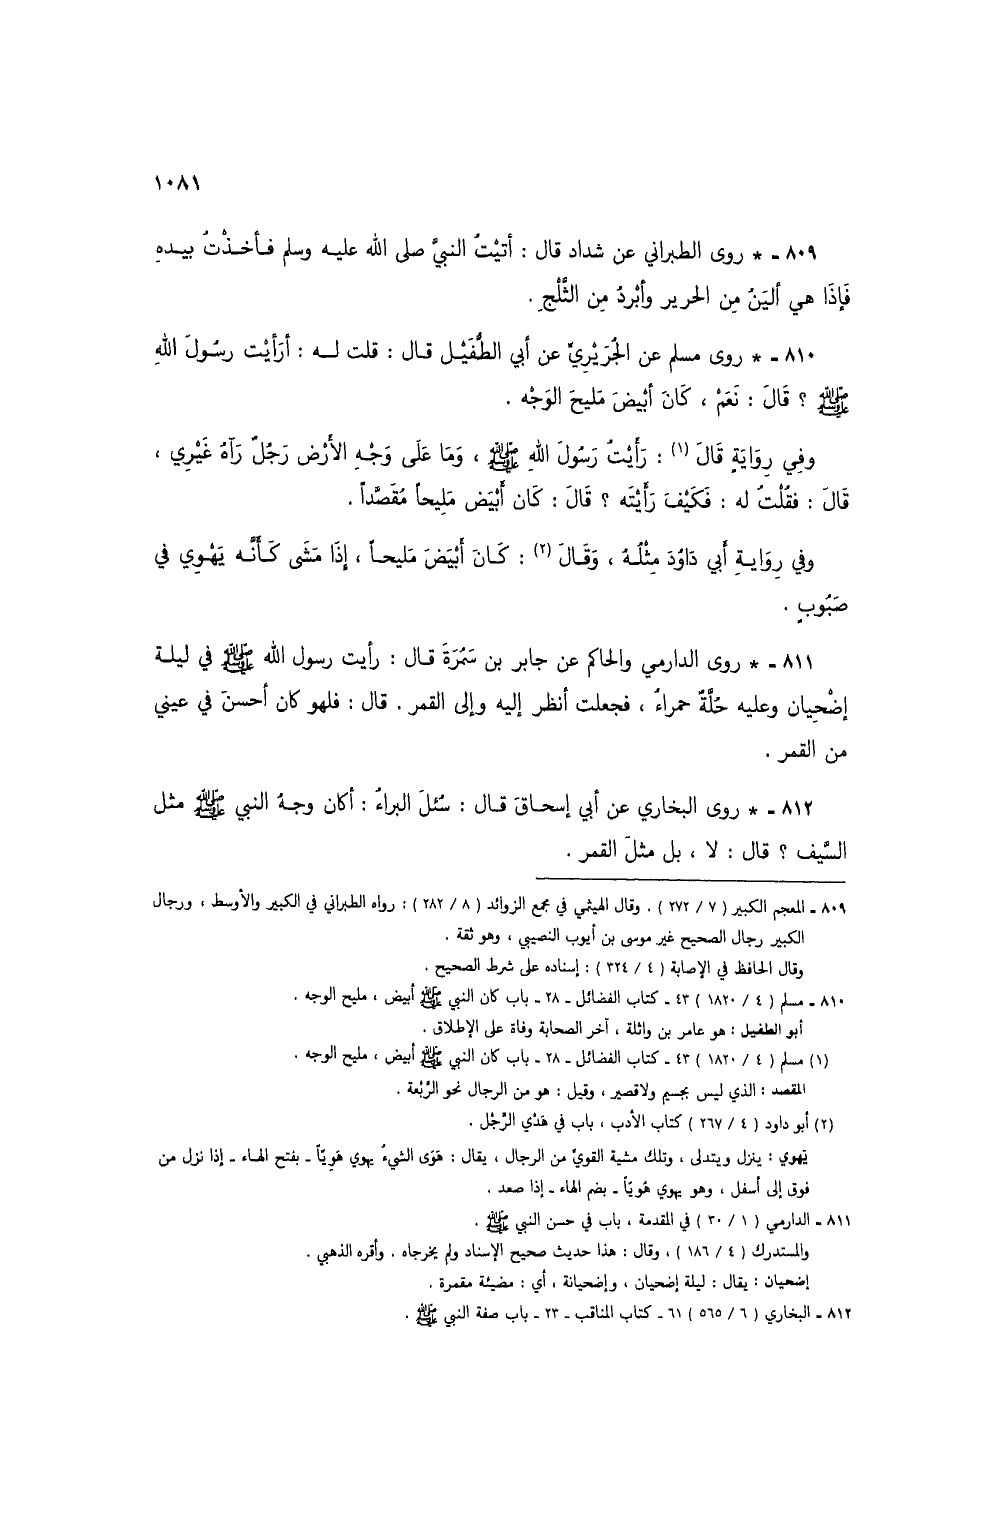 ١٠٨١
٨٠٩ ـ * روى الطبراني عن شداد قال : أتيْتُ النبيَّ صلى الله عليـه وسلم فـأخـذْتُ بيـدهِ
فَإذَا هي أليَنُ مِن الحرير وأبْردُ مِن الثَّلْجِ .
٨١٠ ـ * روى مسلم عن الجُرَيْرِيِّ عن أبي الطُّفَيْـل قـال : قلت لـه : أرَأيْت رسُولَ اللهِ
ﷺ ؟ قَالَ : نَعَمْ ، كَانَ أبْيضَ مَليحَ الوَجْه .
وفِي رِوَايَةٍ قَالَ (١) : رَأَيْتُ رَسُولَ اللهِ ﷺ ، وَمَا عَلَى وَجْهِ الأَرْض رَجُلٌ رَآهُ غَيْرِي ،
قَالَ : فقُلْتُ له : فَكَيْفَ رَأَيْتَه ؟ قَالَ : كَان أَبْيَض مَلِيحاً مُقَصَّداً .
وفي رِوَايـةِ أبي دَاوُدَ مِثْلُـهُ ، وَقَـالَ (٢) : كَـانَ أَبْيَضَ مَليحـاً ، إذَا مَشَى كَـأَنَّـه يَهْوِي في
صَبُوبٍ .
٨١١ ـ * روى الدارمي والحاكم عن جابر بن سَمُرَةَ قـال : رأيت رسول الله ﷺ في ليلـة
إضْحِيان وعليه حُلَّةٌ حمراءُ ، فجعلت أنظر إليه وإلى القمر . قال : فلهو كان أحسنَ في عيني
من القمر .
٨١٢ ـ * روى البخاري عن أبي إسحـاقَ قـال : سُئلَ البراءُ : أكان وجـهُ النبي ﷺ مثل
السَّيف ؟ قال : لا ، بل مثلَ القمر .
٨٠٩ ـ المعجم الكبير ( ٧ / ٢٧٢ ) . وقال الهيثمي في مجمع الزوائد ( ٨ / ٢٨٢ ) : رواه الطبراني في الكبير والأوسط ، ورجال
الكبير رجال الصحيح غير موسى بن أيوب النصيبي ، وهو ثقة .
وقال الحافظ في الإصابة ( ٤ / ٣٢٤ ) : إسناده على شرط الصحيح .
٨١٠ ـ مسلم ( ٤ / ١٨٢٠ ) ٤٣ ـ كتاب الفضائل ـ ٢٨ ـ باب كان النبي ﷺ أبيض ، مليح الوجه .
أبو الطفيل : هو عامر بن واثلة ، آخر الصحابة وفاة على الإطلاق .
(١) مسلم ( ٤ / ١٨٢٠ ) ٤٣ ـ كتاب الفضائل ـ ٢٨ ـ باب كان النبي ﷺ أبيض ، مليح الوجه .
المقصد : الذي ليس بجسيم ولاقصير ، وقيل : هو من الرجال نحو الرَّبْعة .
(٢) أبو داود ( ٤ / ٢٦٧ ) كتاب الأدب ، باب في هَدْي الرَّجُل .
يَهوي : ينزل ويتدلى ، وتلك مشية القويِّ من الرجال ، يقال : هَوَى الشيءُ يهوي هَوِيّاً ـ بفتح الهـاء ـ إذا نزل من
فوق إلى أسفل ، وهو يهوي هُويّاً ـ بضم الهاء ـ إذا صعد .
٨١١ ـ الدارمي ( ١ / ٣٠ ) في المقدمة ، باب في حسن النبي ﷺ .
والمستدرك ( ٤ / ١٨٦ ) ، وقال : هذا حديث صحيح الإسناد ولم يخرجاه . وأقره الذهبي .
إضحيان : يقال : ليلة إضحيان ، وإضحيانة ، أي : مضيئة مقمرة .
٨١٢ ـ البخاري ( ٦ / ٥٦٥ ) ٦١ ـ كتاب المناقب ـ ٢٣ ـ باب صفة النبي ﷺ .